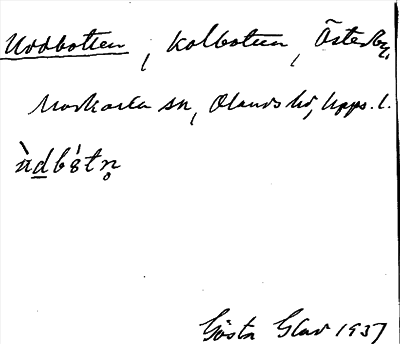 Uddbotten, Kolbotten, Österby,
Morkarla sn, Olands hd, Upps. l.
Gösta Glav 1937